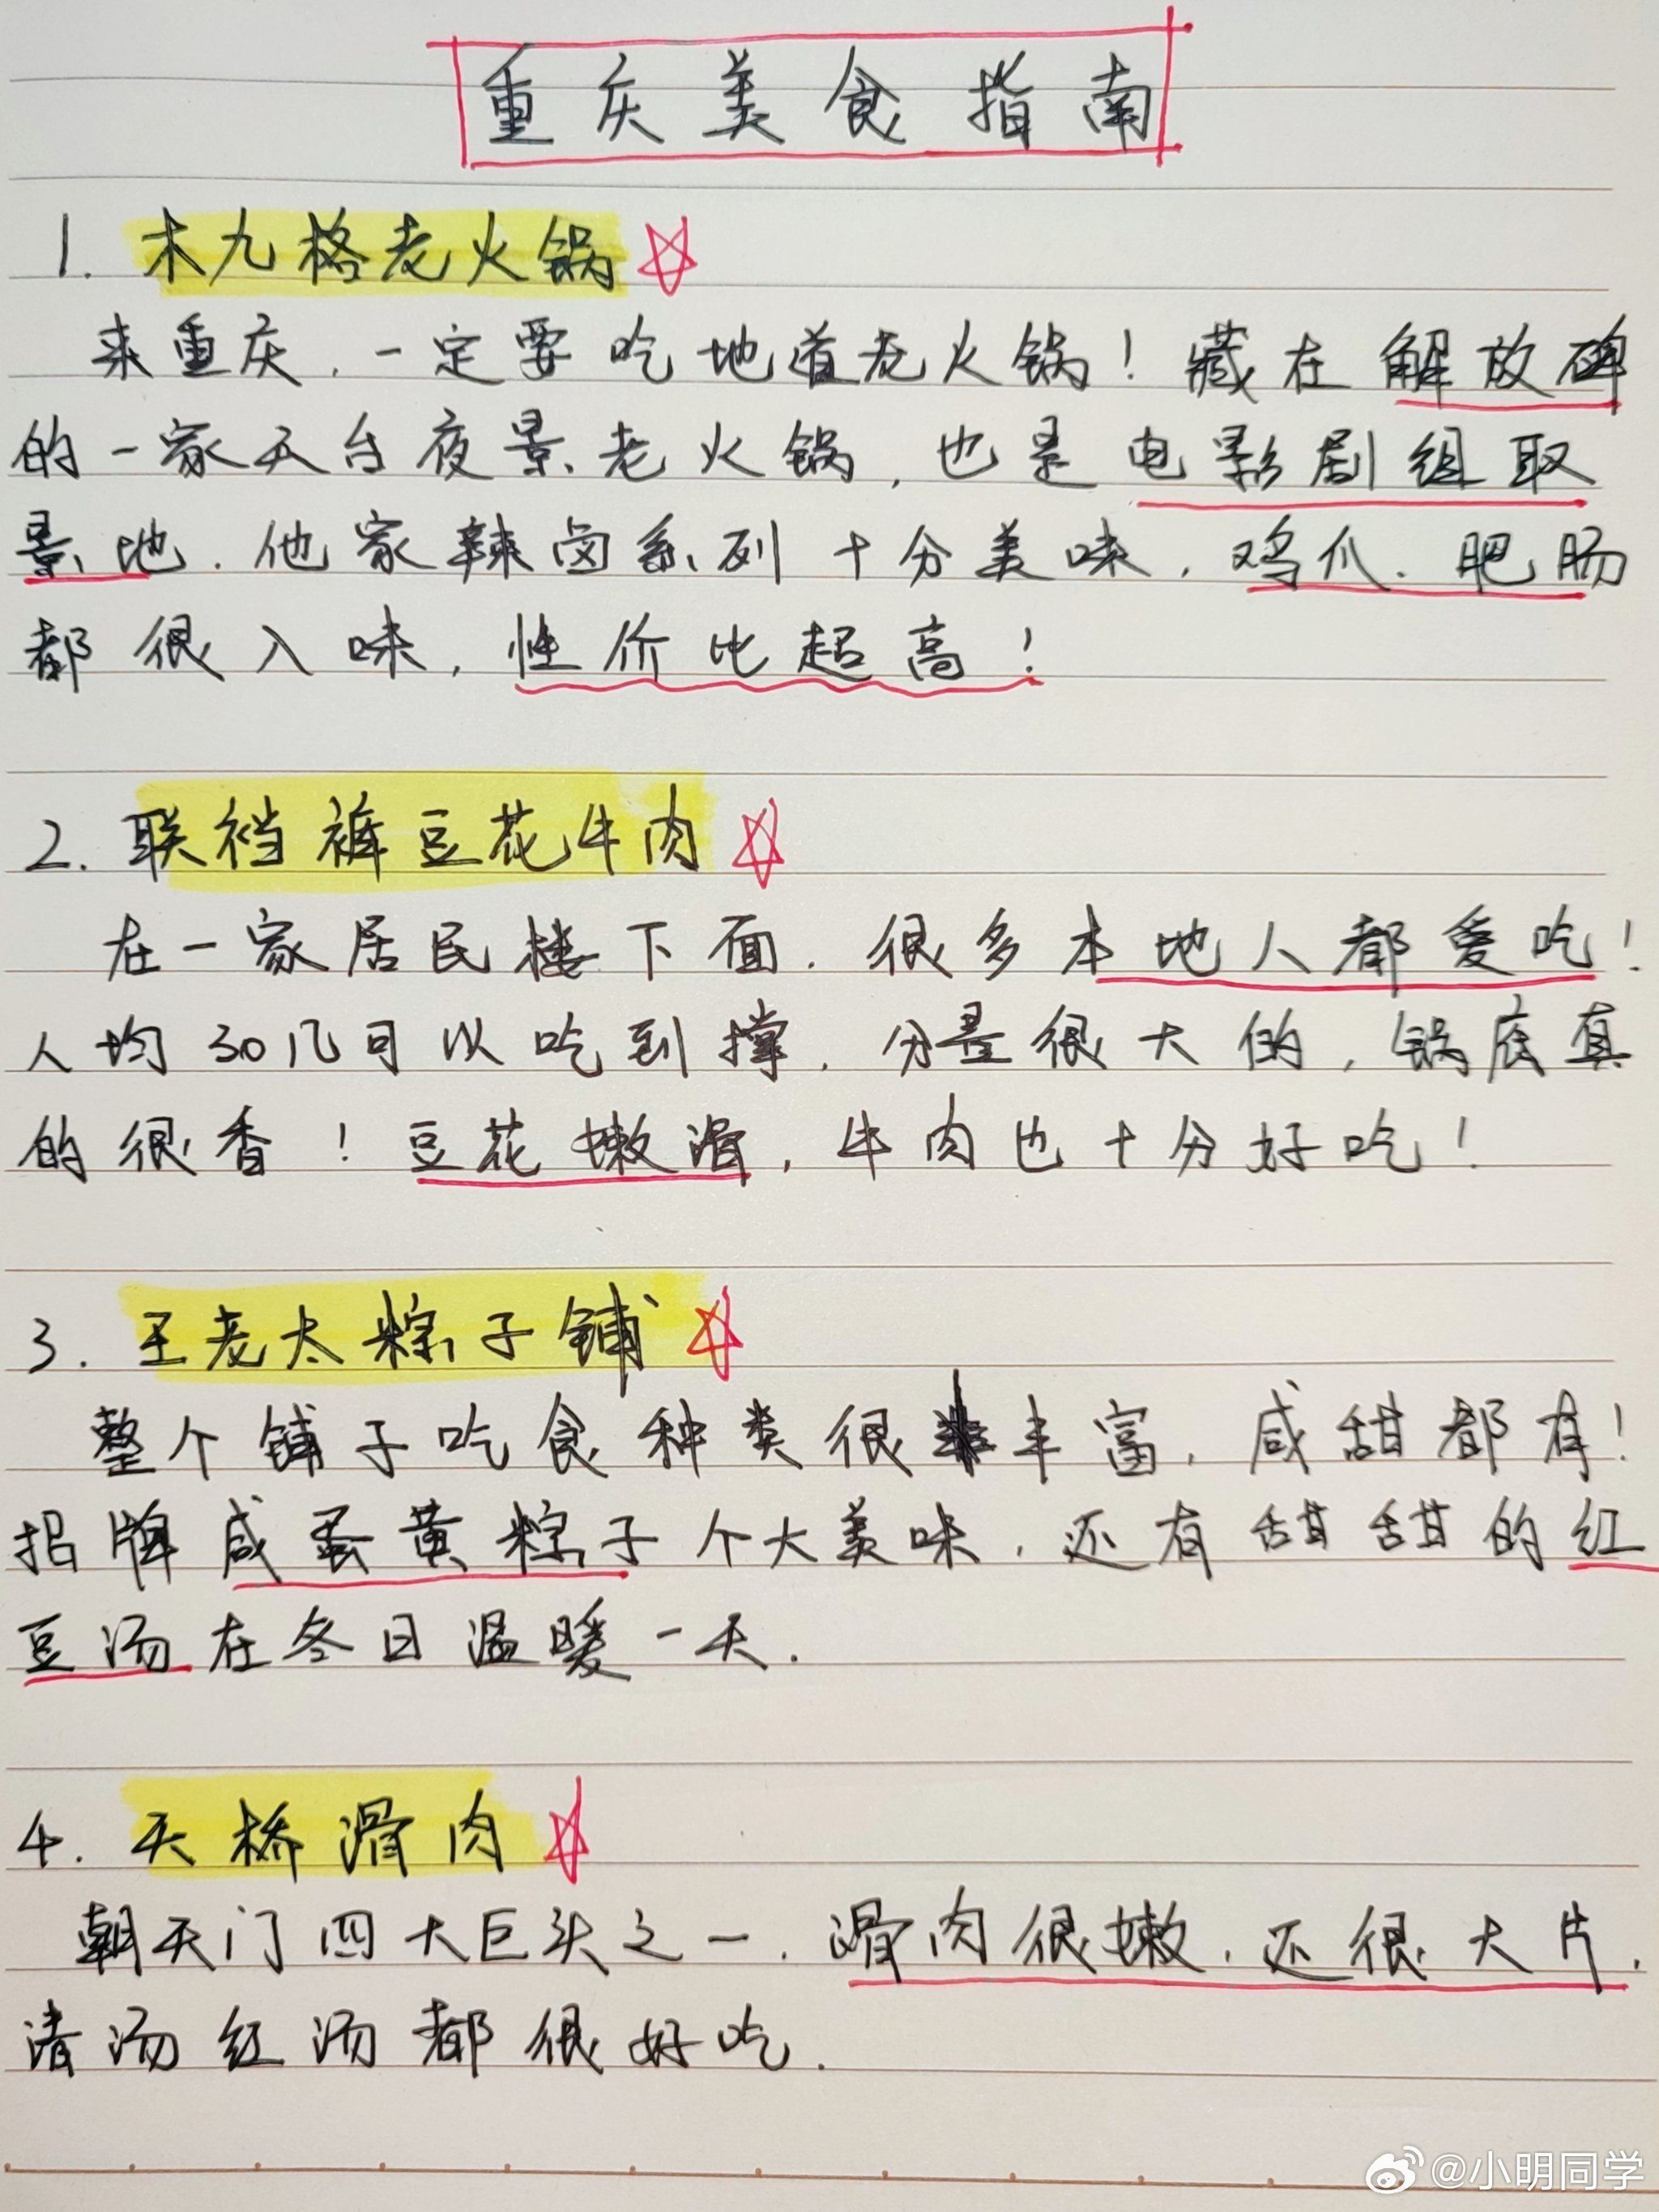 重庆美食指南
1. 木九格老火锅
来重庆，一定要吃地道老火锅！藏在解放碑
的一家天台夜景老火锅，也是电影剧组取
景地．他家辣卤系列十分美味，鸡爪．肥肠
都很入味，性价比超高！
2. 联裆裤豆花牛肉
在一家居民楼下面．很多本地人都爱吃！
人均30几可以吃到撑．分量很大的，锅底真
的很香！豆花嫩滑，牛肉也十分好吃！
3. 王老太粽子铺
整个铺子吃食种类很丰富，咸甜都有！
招牌咸蛋黄粽子个大美味．还有甜甜的红
豆汤在冬日温暖一天．
4. 天桥滑肉
朝天门四大巨头之一．滑肉很嫩．还很大片．
清汤红汤都很好吃．
@小明同学